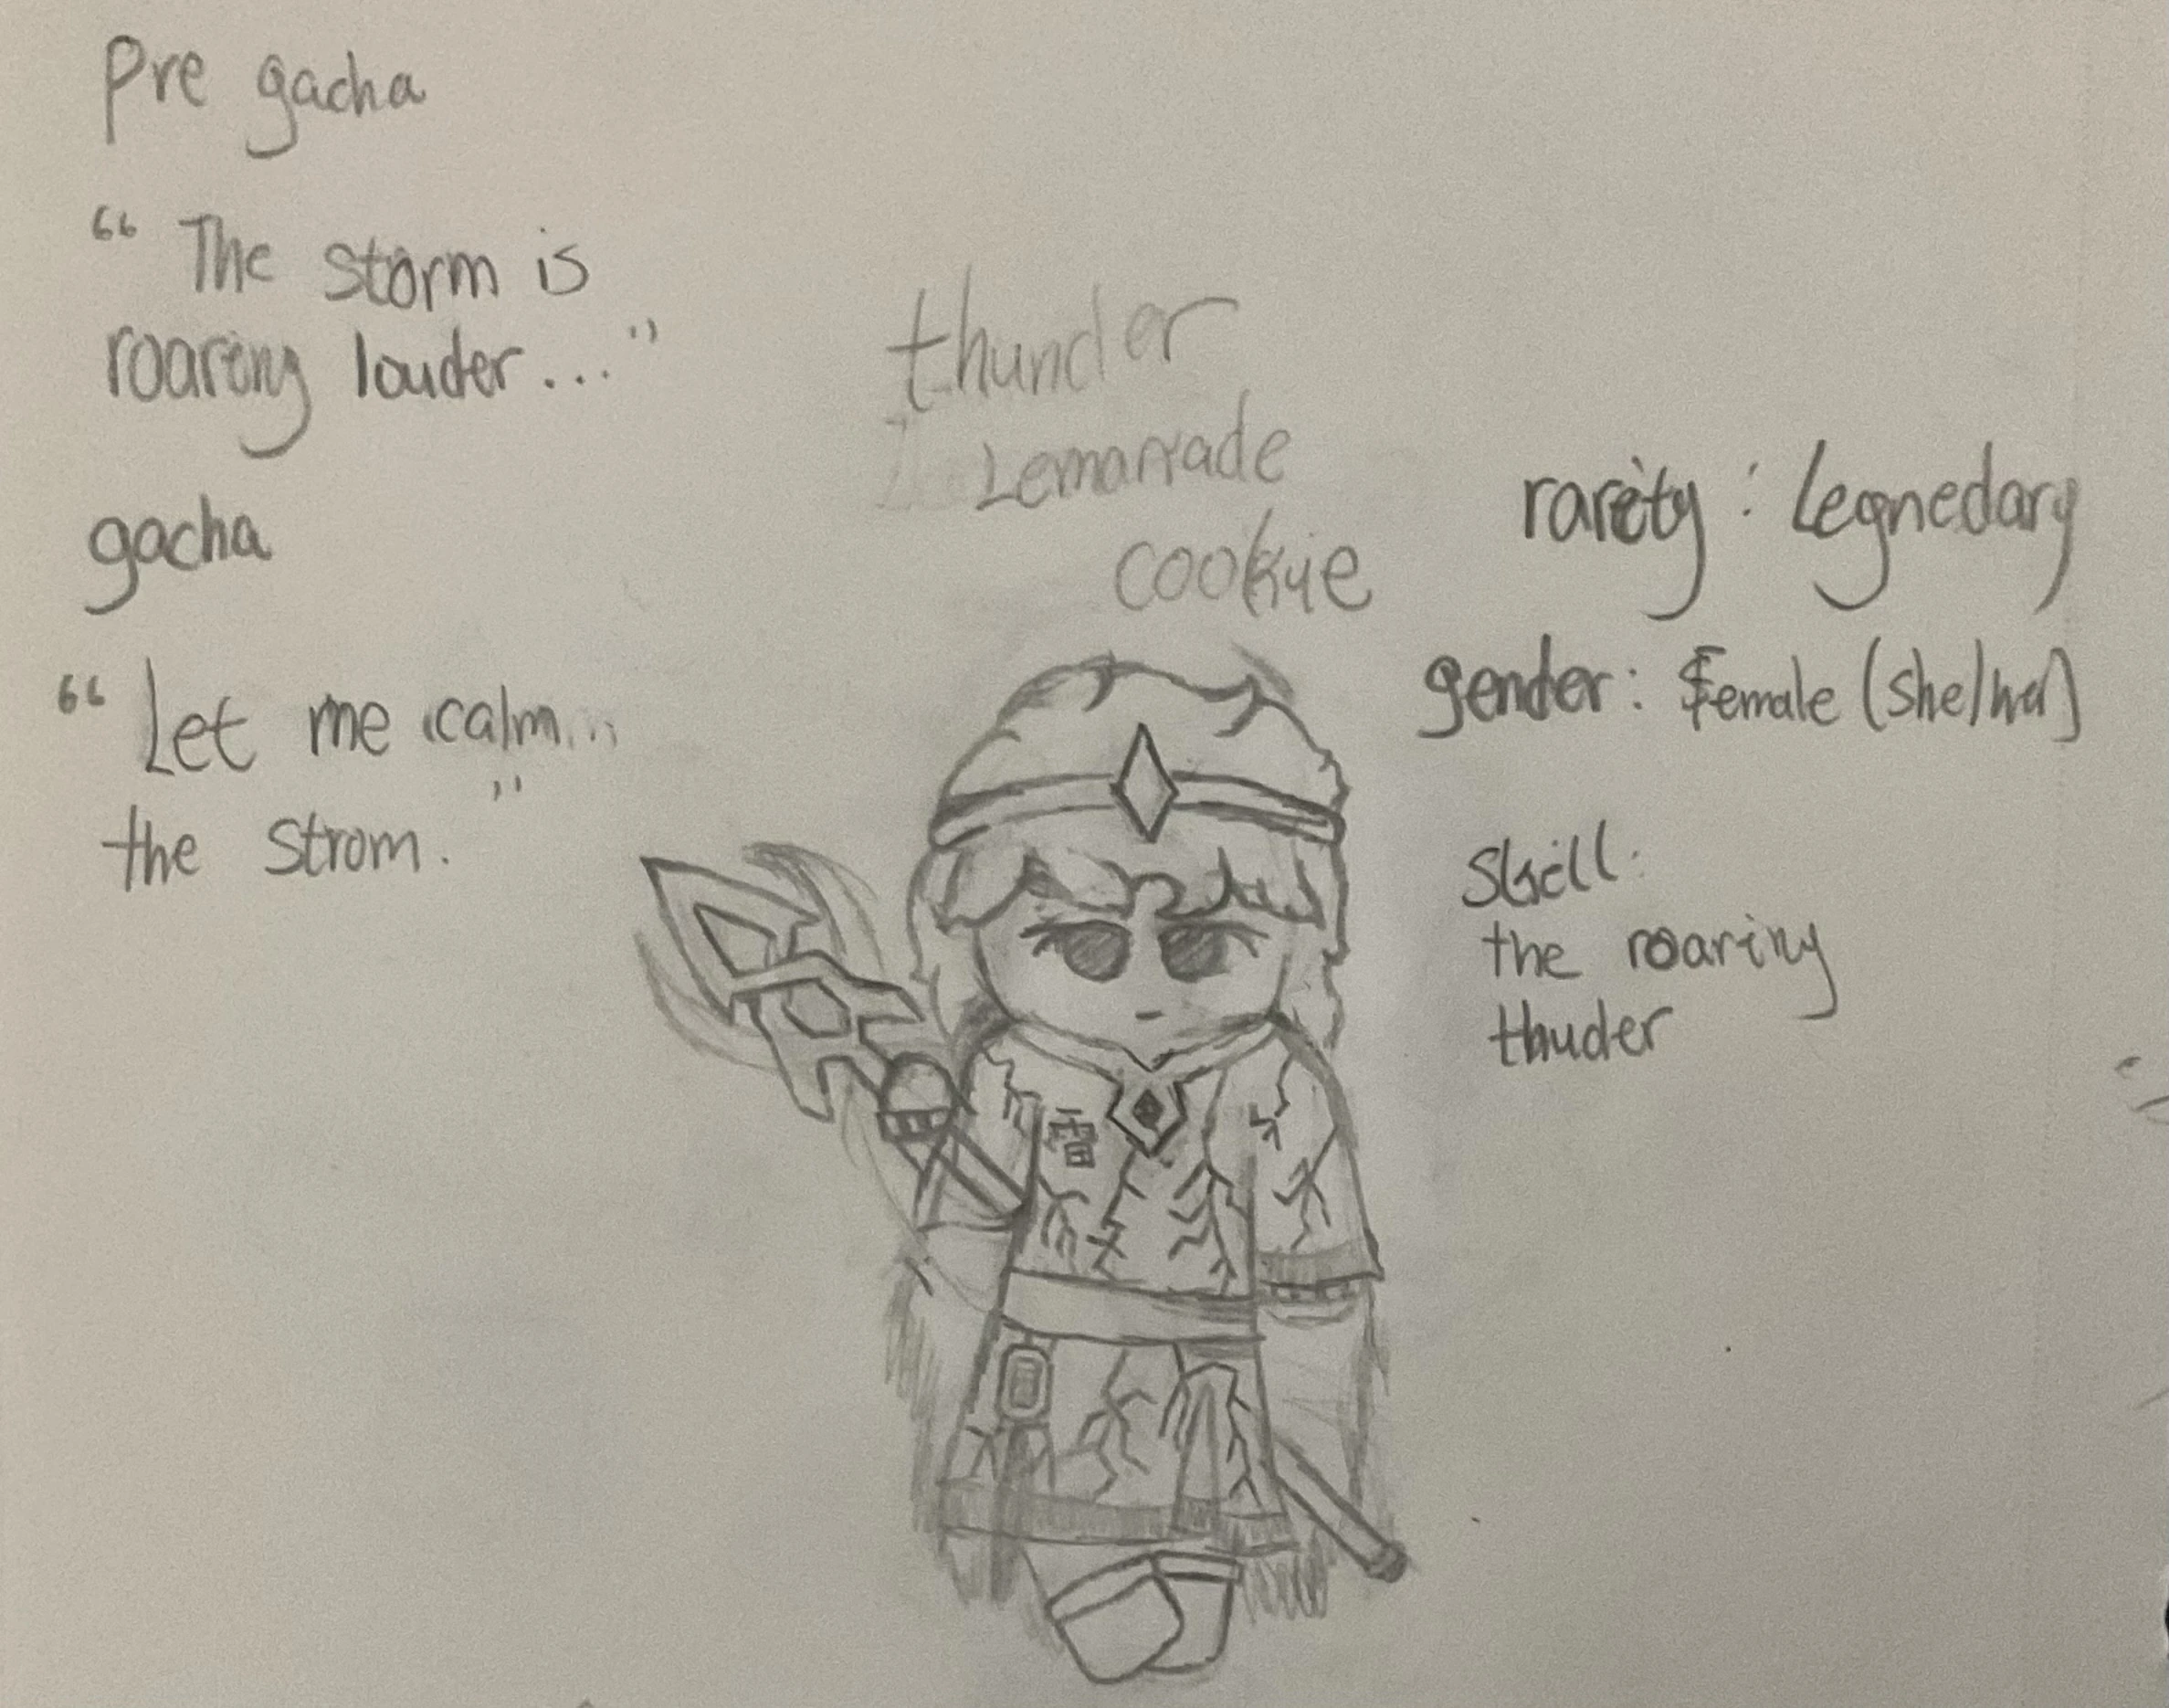 Pre gacha
“ The storm is
roaring louder... ”
gacha
“ Let me calm...
the Strom. ”
thunder
Lemonade
cookie
rarity : Legnedary
gender: Female (she/her)
Skill:
the roaring
thuder
雷